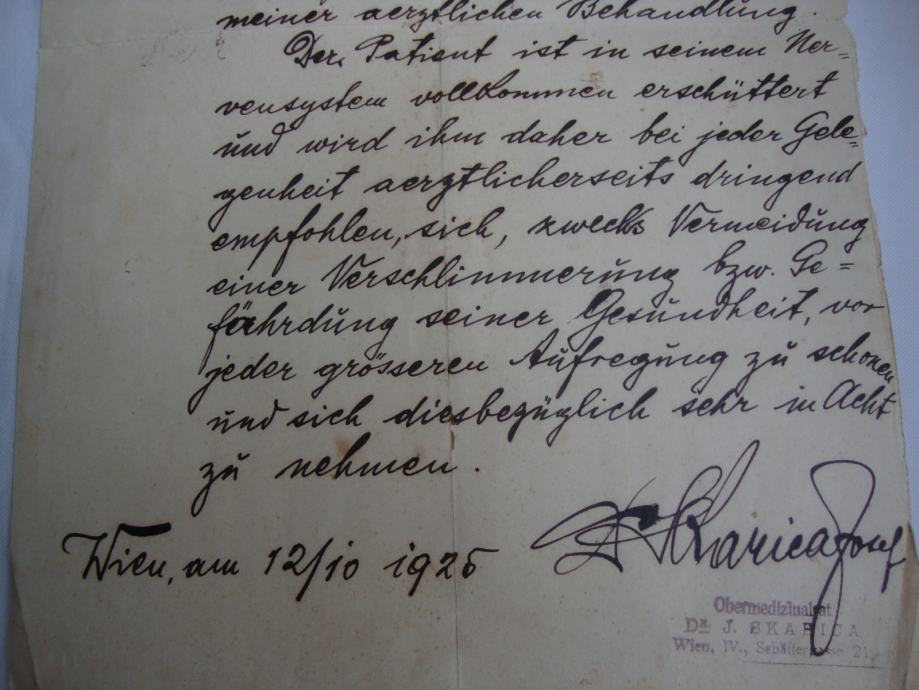 meiner aerztlichen Behandlung.
Der Patient ist in seinem Ner=
vensystem vollkommen erschüttert
und wird ihm daher bei jeder Gele=
genheit aerztlicherseits dringend
empfohlen, sich, zwecks Vermeidung
einer Verschlimmerung bzw. Ge=
fährdung seiner Gesundheit, vor
jeder grösseren Aufregung zu schonen
und sich diesbezüglich sehr in Acht
zu nehmen.
Dr Skarica Josef
Wien, am 12/10 1925
Obermedizinalrat
DR. J. SKARICA
Wien, IV., Schäffergasse 21